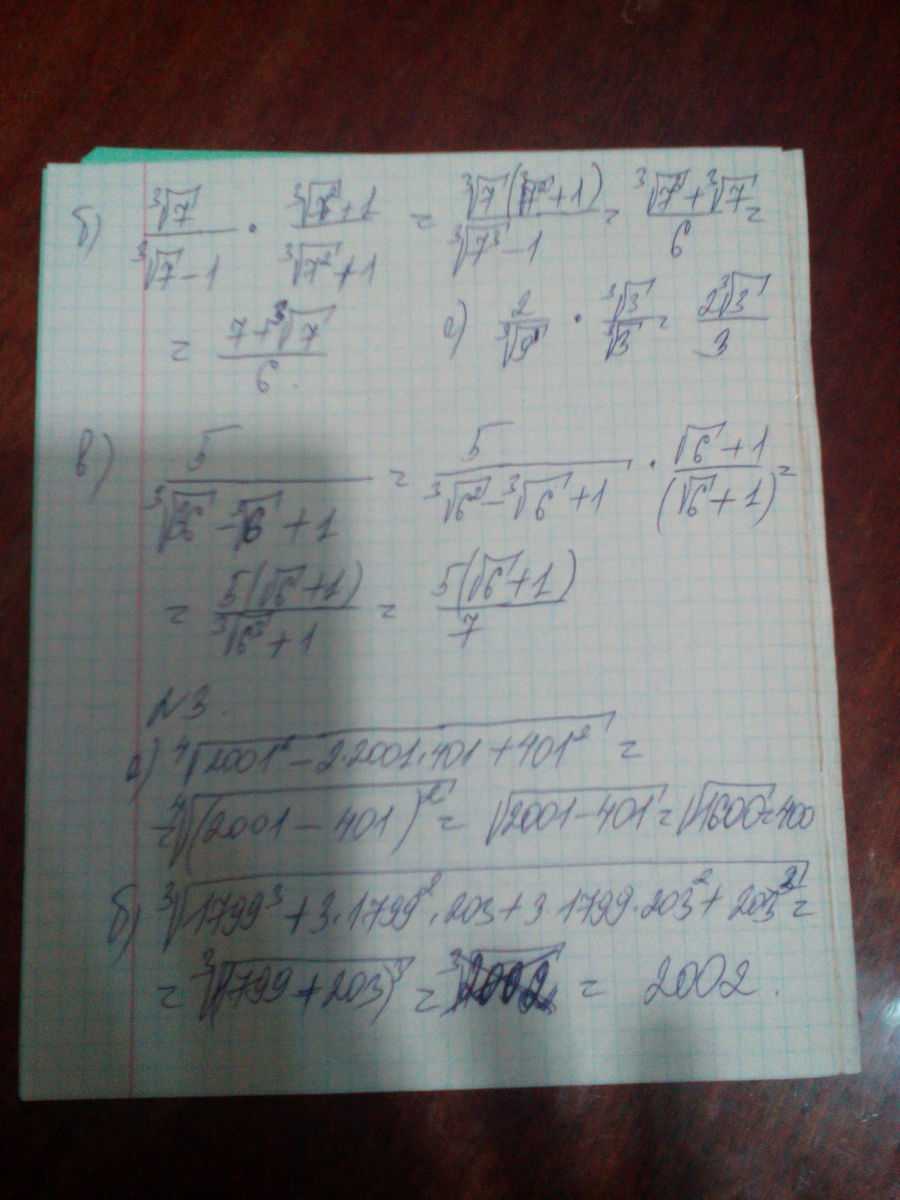 б) ∛7/(∛7 - 1) · (∛7² + 1)/(∛7² + 1) = ∛7(∛7² + 1)/(∛7³ - 1) = (∛7³ + ∛7)/6 =
= (7 + ∛7)/6.
а) 2/∛9 · ∛3/∛3 = 2∛3/3
в) 5/(∛36 - ∛6 + 1) = 5/(∛6² - ∛6 + 1) · (√6 + 1)/(√6 + 1) =
= 5(√6 + 1)/(∛6³ + 1) = 5(√6 + 1)/7
N3.
а) ∜(2001² - 2·2001·401 + 401²) =
= ∜((2001 - 401)²) = √(2001 - 401) = √1600 = 400
б) ∛(1799³ + 3·1799²·203 + 3·1799·203² + 203³) =
= ∛((1799 + 203)³) = = 2002.